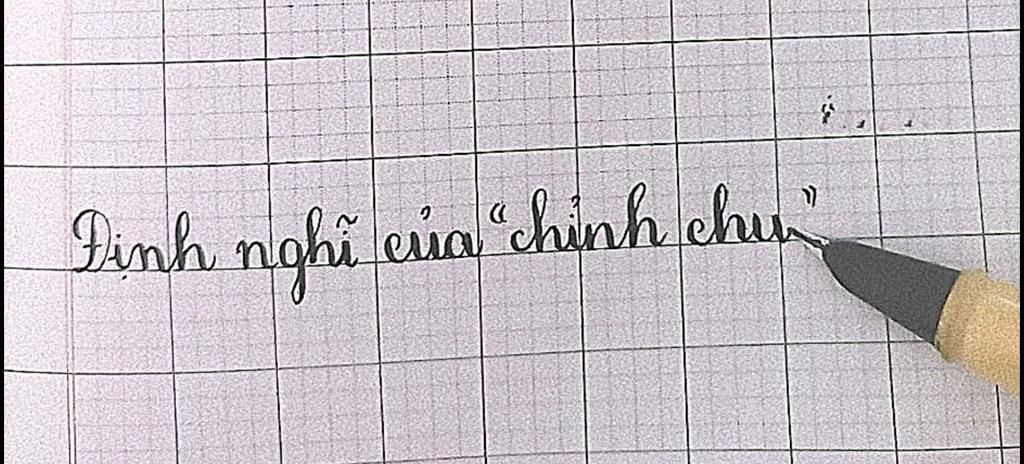 Định nghĩ của "chỉnh chu"